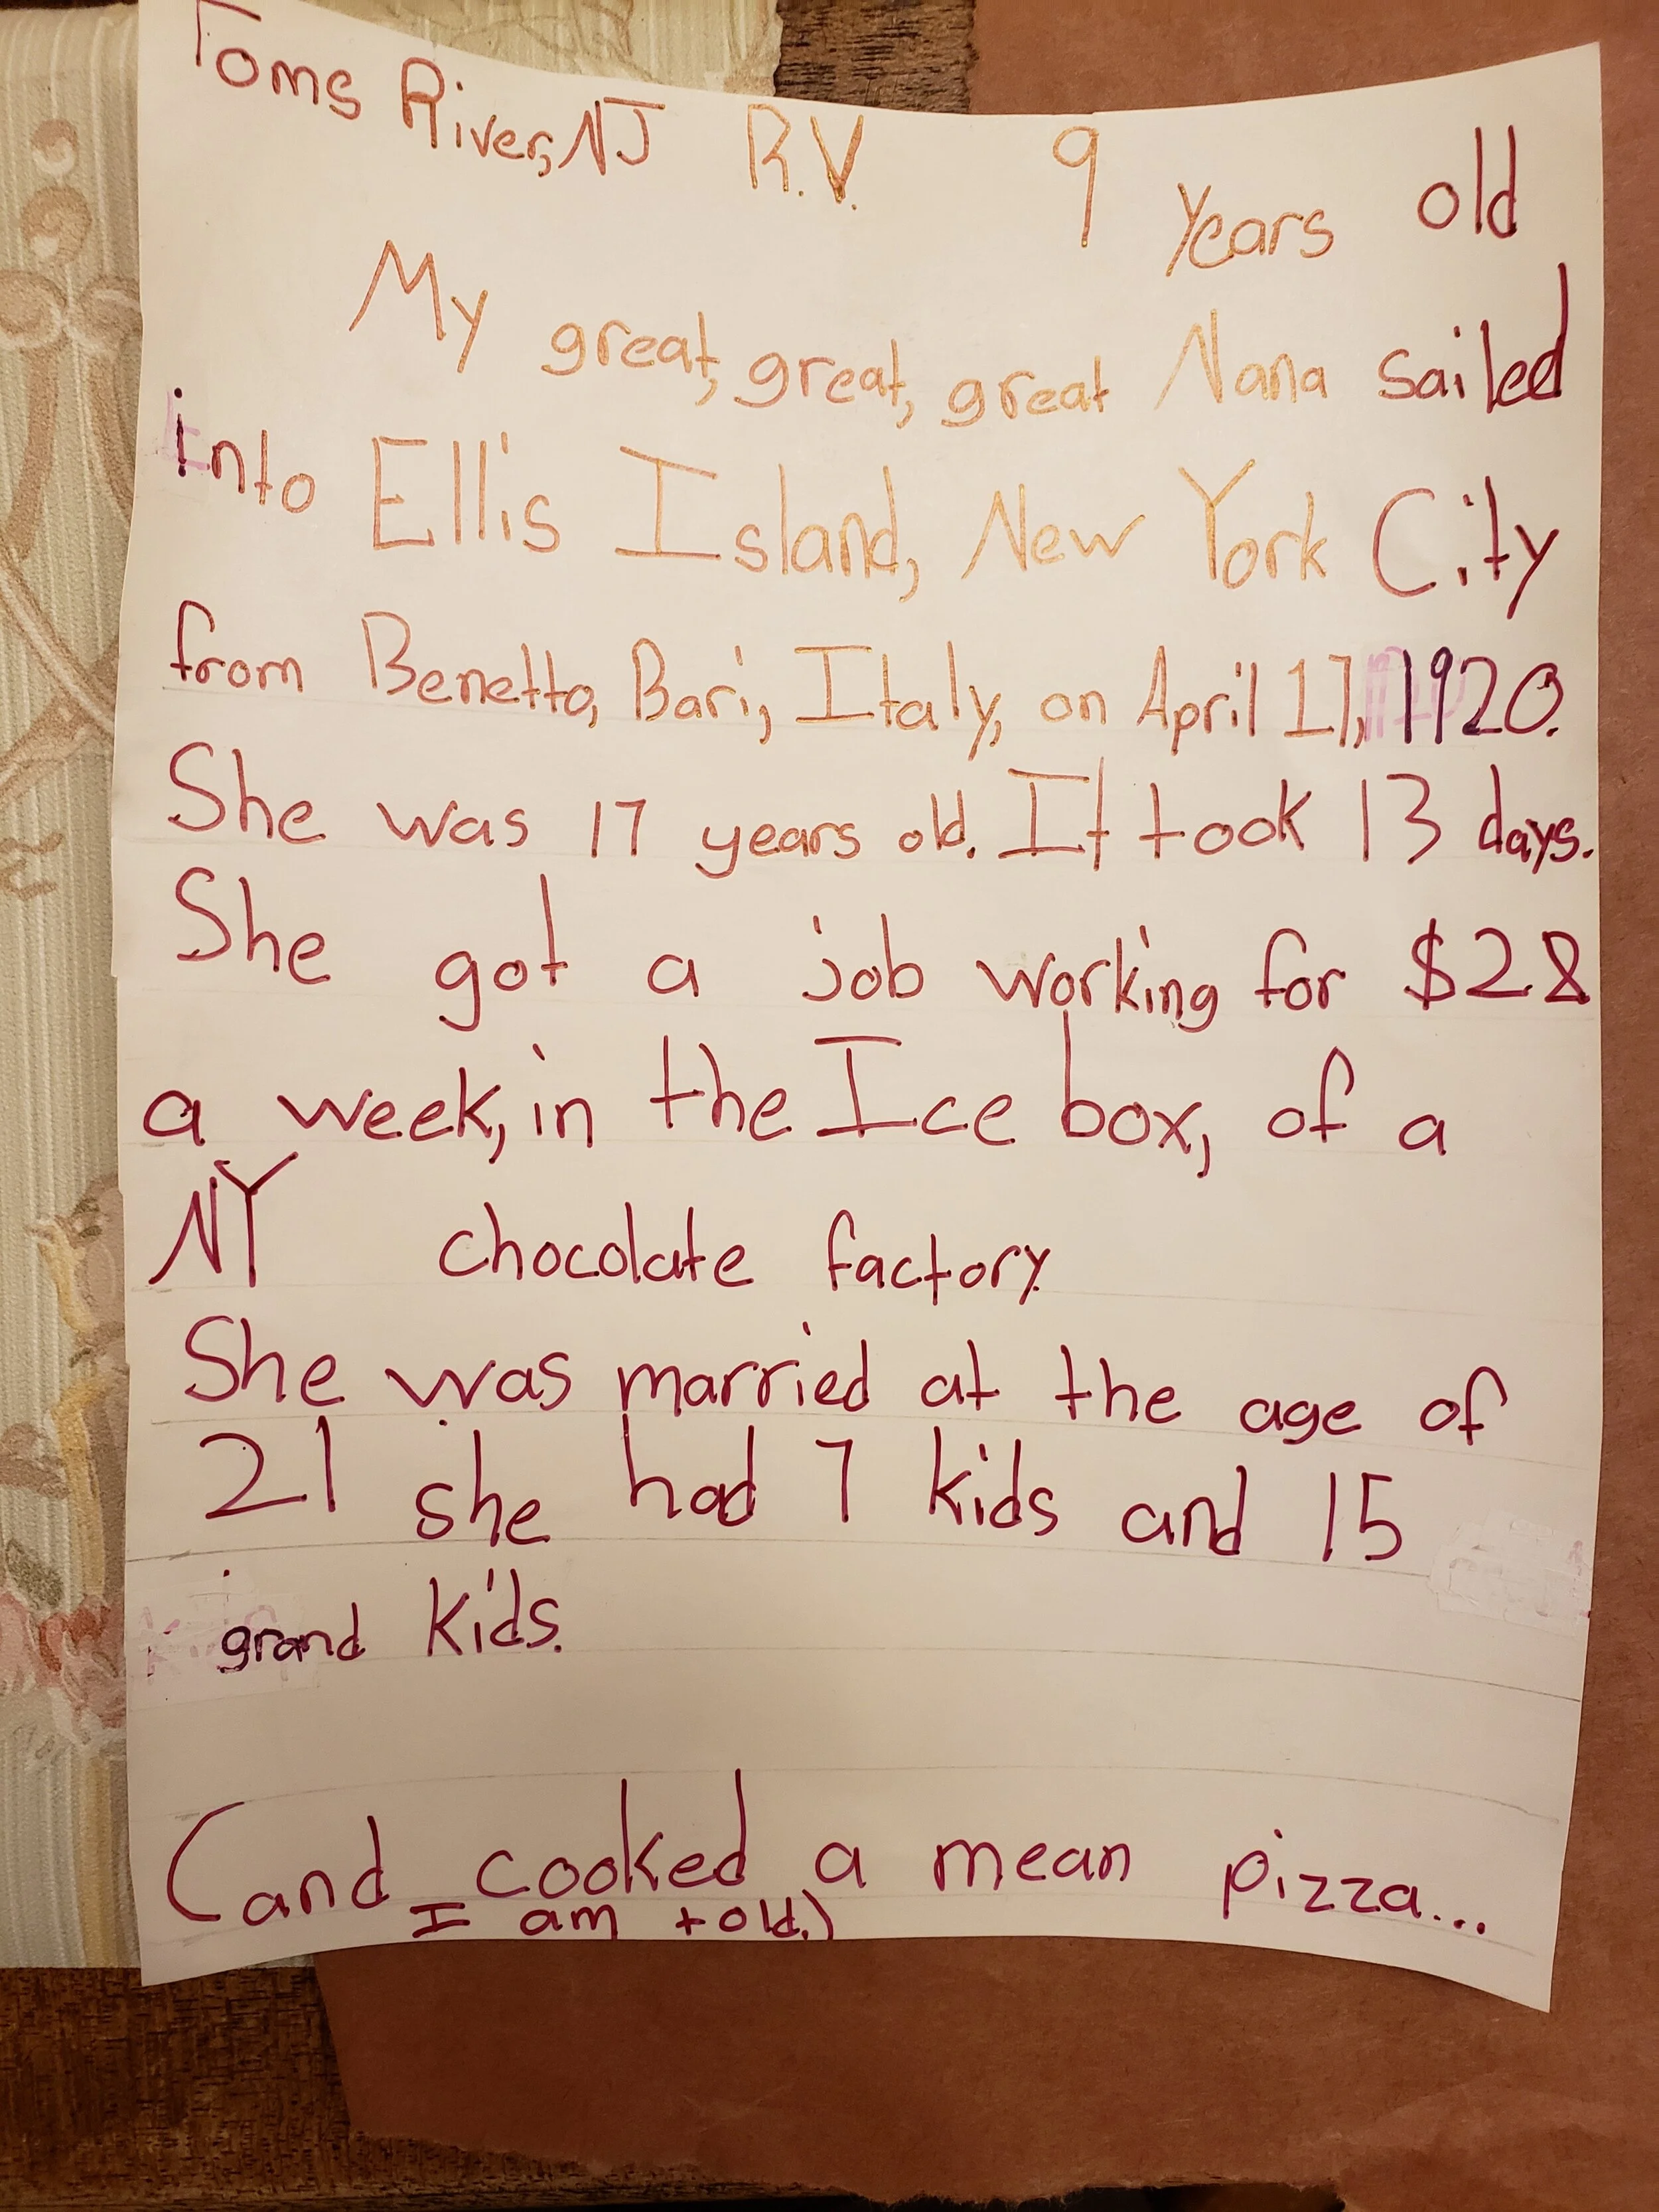 Toms River, NJ R.V. 9 years old
My great, great, great Nana sailed
into Ellis Island, New York City
from Benetto, Bari, Italy, on April 17, 1920.
She was 17 years old. It took 13 days.
She got a job working for $28
a week, in the Ice box, of a
NY chocolate factory.
She was married at the age of
21 she had 7 kids and 15
grand kids.
(and cooked a mean pizza...
I am told.)